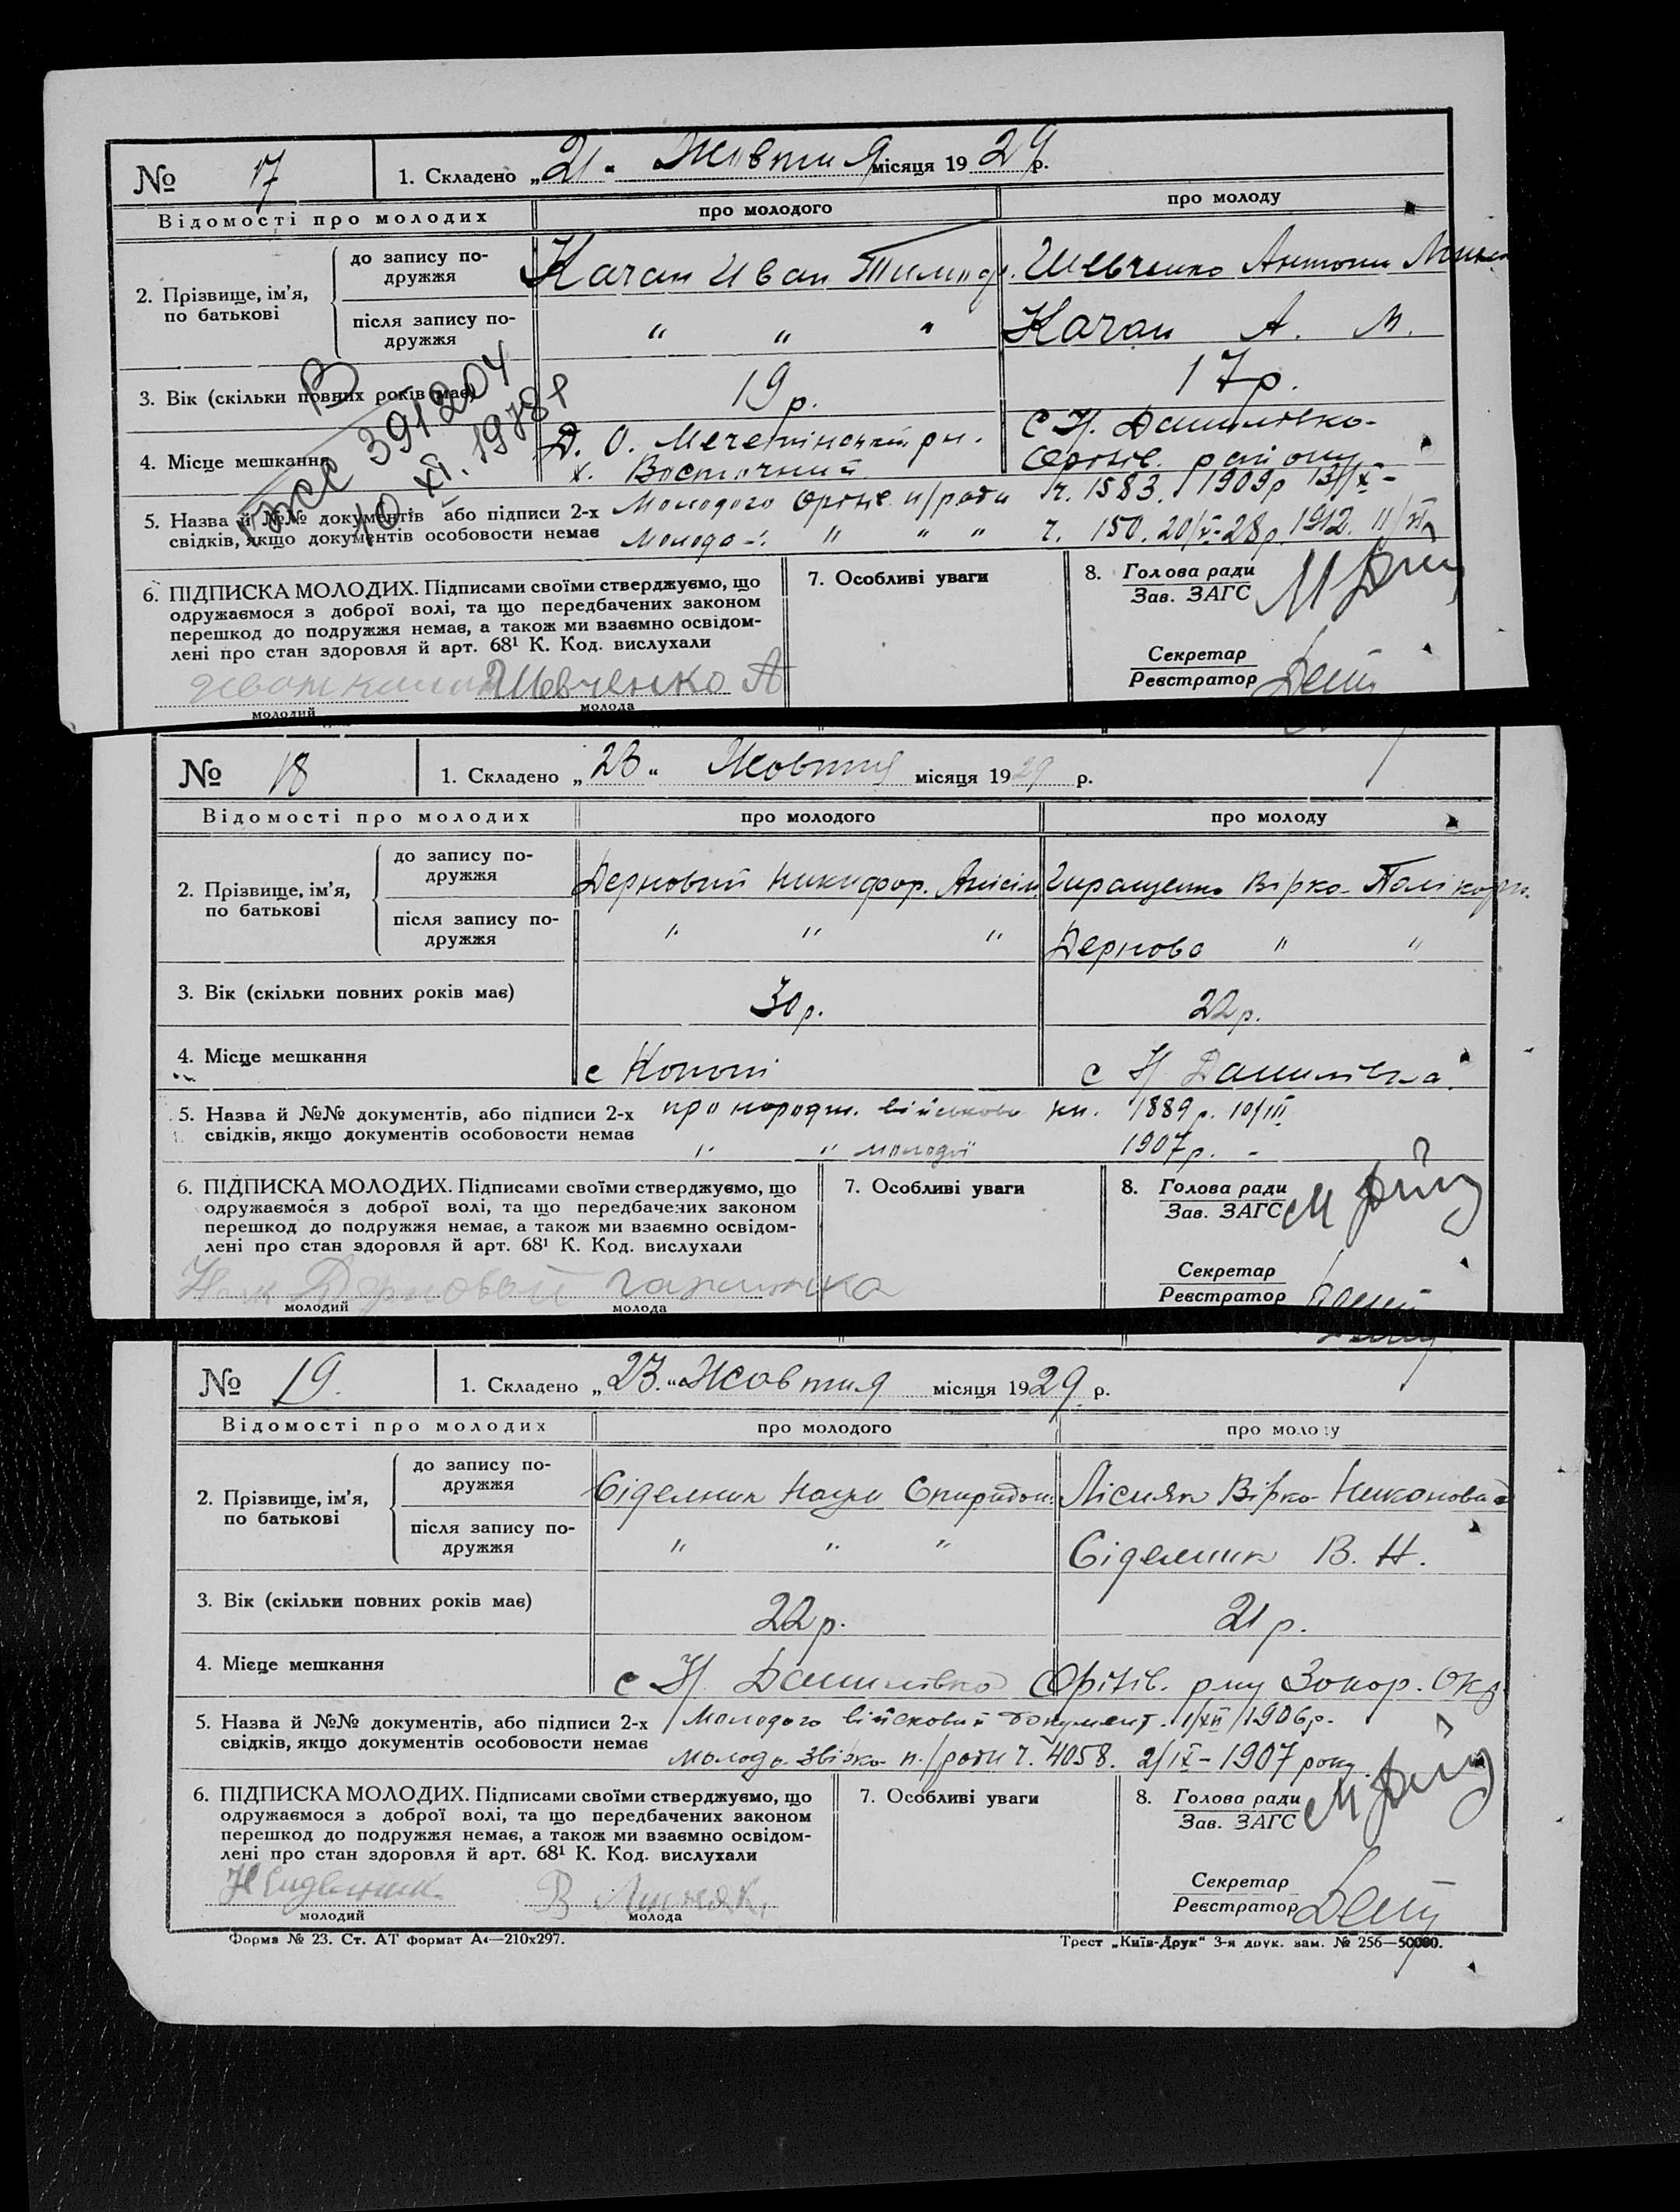 № 17 1. Складено „21" Жовтня місяця 1929 р.
Відомості про молодих про молодого про молоду
2. Прізвище, ім'я, по батькові
до запису по-
дружжя
Качан Иван Тимоф. Шевченко Антони
після запису по-
дружжя
" " " Качан А. М.
3. Вік (скільки повних років має) 19 р. 17 р.
В
391204
10 XI. 1978 р
4. Місце мешкання Д. О. Мечетінський рн. с Н. Данилівка
х. Восточний Оріхів. району
5. Назва й №№ документів або підписи 2-х Молодого Оріхів н/ради ч. 1583. 1909р 13/X -
свідків, якщо документів особовости немає Молода -:. " " " ч. 150. 20/V-28 р. 1912. 11/VI
6. ПІДПИСКА МОЛОДИХ. Підписами своїми стверджуємо, що
одружаємося з доброї волі, та що передбачених законом
перешкод до подружжя немає, а також ми взаємно освідом-
лені про стан здоровля й арт. 68¹ К. Код. вислухали
Шевченко А
молодий молода
7. Особливі уваги
8. Голова ради
Зав. ЗАГС
Секретар
Реєстратор
№ 18 1. Складено „23" Жовтня місяця 1929 р.
Відомості про молодих про молодого про молоду
2. Прізвище, ім'я,
по батькові
до запису по-
дружжя
Дерновий Никифор. Анісім. Гиращенко Вірка Полікарп.
після запису по-
дружжя
" " " Дернова " "
3. Вік (скільки повних років має) 30 р. 22 р.
4. Місце мешкання с Копані с Н Данилівка
5. Назва й №№ документів, або підписи 2-х про народж. військова кн. 1889 р. 10/III
свідків, якщо документів особовости немає " " молодої 1907 р. -
6. ПІДПИСКА МОЛОДИХ. Підписами своїми стверджуємо, що
одружаємося з доброї волі, та що передбачених законом
перешкод до подружжя немає, а також ми взаємно освідом-
лені про стан здоровля й арт. 68¹ К. Код. вислухали
Дерновый
молодий молода
7. Особливі уваги
8. Голова ради
Зав. ЗАГС
Секретар
Реєстратор
№ 19. 1. Складено „23." Жовтня місяця 1929 р.
Відомості про молодих про молодого про молоду
2. Прізвище, ім'я,
по батькові
до запису по-
дружжя
Сідельник Наум Спиридон. Лісняк Вірка Никонова
після запису по-
дружжя
" " " Сідельник В. Н.
3. Вік (скільки повних років має) 22 р. 21 р.
4. Місце мешкання с Н. Данилівка Оріхів. рну Запор. Окр
5. Назва й №№ документів, або підписи 2-х Молодого військовий документ. 1/XII/1906р.
свідків, якщо документів особовости немає Молода звірка п./ради ч. 4058. 2/IX-1907 року.
6. ПІДПИСКА МОЛОДИХ. Підписами своїми стверджуємо, що
одружаємося з доброї волі, та що передбачених законом
перешкод до подружжя немає, а також ми взаємно освідом-
лені про стан здоровля й арт. 68¹ К. Код. вислухали
Н Сидельник В Лисняк
молодий молода
7. Особливі уваги
8. Голова ради
Зав. ЗАГС
Секретар
Реєстратор
Форма № 23. Ст. АТ формат А4—210х297. Трест „Київ-Друк" 3-я друк. зам. № 256—50000.